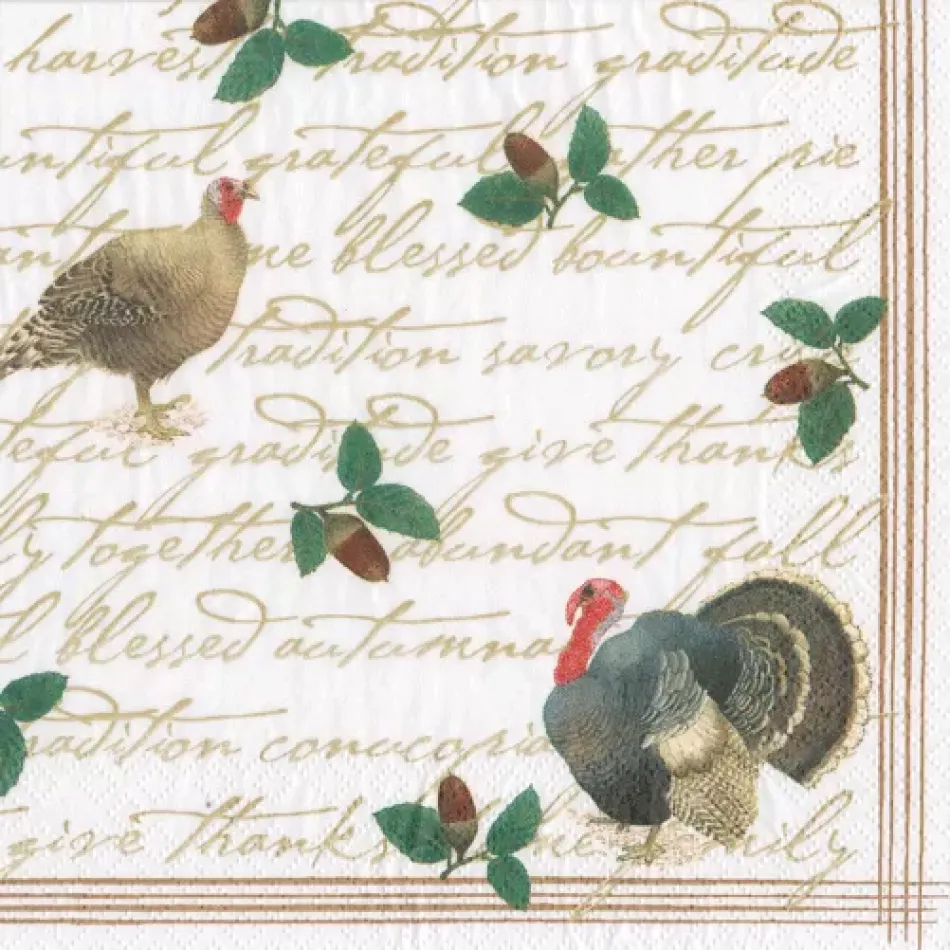 harvest tradition gratitude
untiful grateful ather pie
me blessed bountiful
tradition savory cra
teful gratitude give thanks
ly together abundant fall
l blessed autumna
radition conucopia
give thanks me family